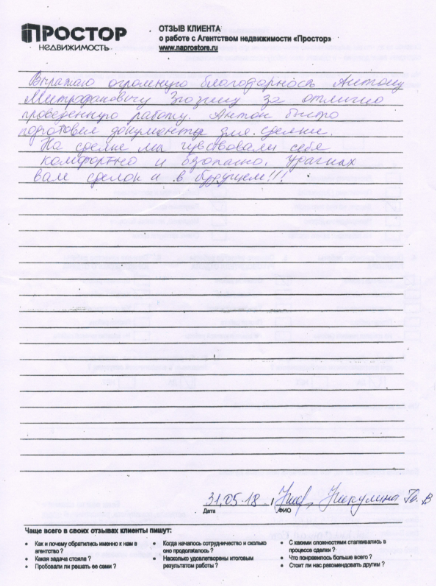 ПРОСТОР
НЕДВИЖИМОСТЬ
ОТЗЫВ КЛИЕНТА
о работе с Агентством недвижимости «Простор»
www.naprostore.ru
Выражаю огромную благодарность Антону
Митрофановичу за отлично
проведенную работу. Антон быстро
подготовил документы для сделки.
На сделке мы чувствовали себя
комфортно и безопасно. Удачных
вам сделок и в будущем!!!
31.05.18 Никулина Го. В
Дата ФИО
Чаще всего в своих отзывах клиенты пишут:
• Как и почему обратились именно к нам в агентство ?
• Какая задача стояла ?
• Пробовали ли решать ее сами ?
• Когда началось сотрудничество и сколько оно продолжалось ?
• Насколько удовлетворены итоговым результатом работы ?
• С какими сложностями сталкивались в процессе сделки ?
• Что понравилось больше всего ?
• Стоит ли нас рекомендовать другим ?